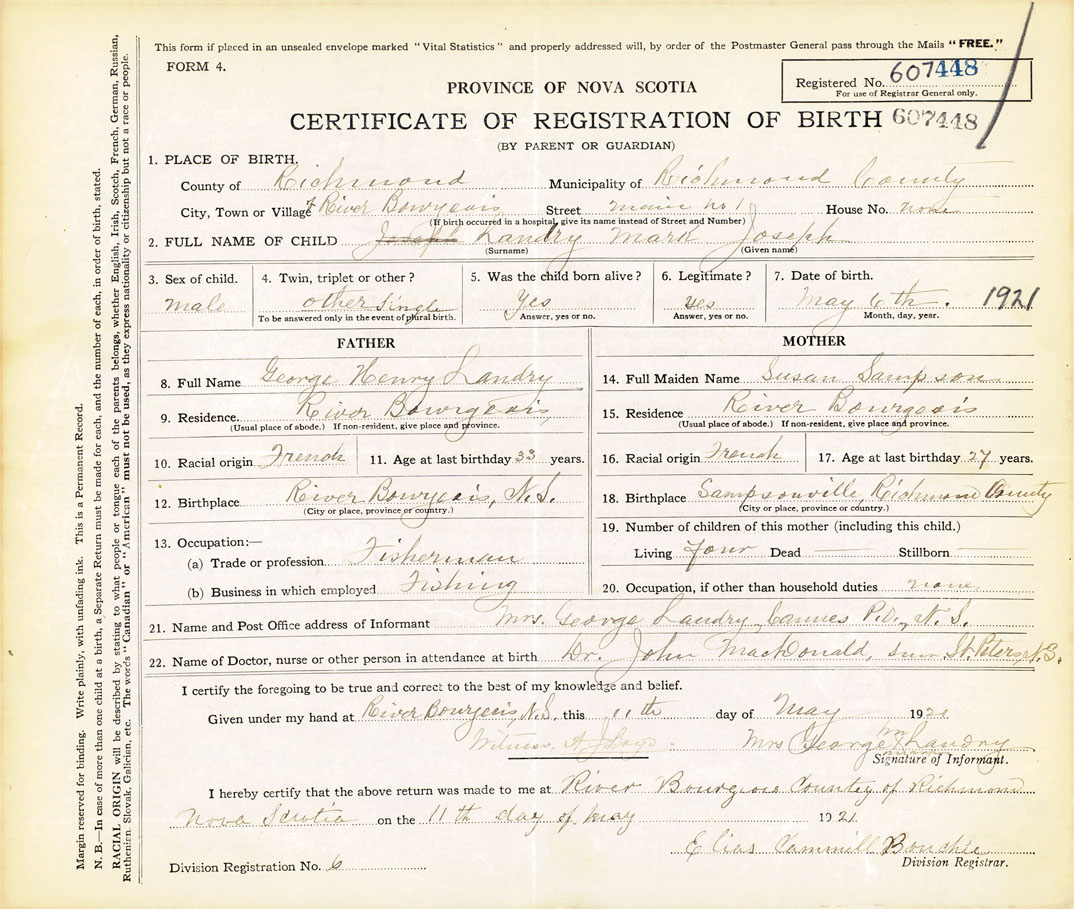 This form if placed in an unsealed envelope marked "Vital Statistics" and properly addressed will, by order of the Postmaster General pass through the Mails "FREE."
FORM 4.
Registered No. 607448
For use of Registrar General only.
PROVINCE OF NOVA SCOTIA
CERTIFICATE OF REGISTRATION OF BIRTH 607448
(BY PARENT OR GUARDIAN)
1. PLACE OF BIRTH.
County of Richmond Municipality of Richmond County
City, Town or Village River Bourgeois Street main no 1 House No. none
(If birth occurred in a hospital, give its name instead of Street and Number)
2. FULL NAME OF CHILD Joseph Landry Mark Joseph
(Surname) (Given name)
3. Sex of child. 4. Twin, triplet or other? 5. Was the child born alive? 6. Legitimate? 7. Date of birth.
male other Single Yes yes May 6th. 1921
To be answered only in the event of plural birth. Answer, yes or no. Answer, yes or no. Month, day, year.
FATHER
8. Full Name George Henry Landry
9. Residence. River Bourgeois
(Usual place of abode.) If non-resident, give place and province.
10. Racial origin French 11. Age at last birthday 33 years.
12. Birthplace River Bourgeois, N.S.
(City or place, province or country.)
13. Occupation:—
(a) Trade or profession Fisherman
(b) Business in which employed Fishing
MOTHER
14. Full Maiden Name Susan Sampson
15. Residence River Bourgeois
(Usual place of abode.) If non-resident, give place and province.
16. Racial origin French 17. Age at last birthday 27 years.
18. Birthplace Sampsonville, Richmond County
(City or place, province or country.)
19. Number of children of this mother (including this child.)
Living four Dead Stillborn
20. Occupation, if other than household duties none
21. Name and Post Office address of Informant Mrs. George Landry, Cannes P.O., N.S.
22. Name of Doctor, nurse or other person in attendance at birth Dr. John MacDonald, St. Peters, N.S.
I certify the foregoing to be true and correct to the best of my knowledge and belief.
Given under my hand at River Bourgeois, N.S. this 11th day of May 1921
Witness, A J Boyd. Mrs George Landry
Signature of Informant.
I hereby certify that the above return was made to me at River Bourgeois Country of Richmond
Nova Scotia on the 11th day of may 1921.
Elias Cammill Bouchie
Division Registration No. 6 Division Registrar.
Margin reserved for binding. Write plainly, with unfading ink. This is a Permanent Record.
N. B.—In case of more than one child at a birth, a Separate Return must be made for each, and the number of each, in order of birth, stated.
RACIAL ORIGIN will be described by stating to what people or tongue each of the parents belongs, whether English, Irish, Scotch, French, German, Russian,
Ruthenian, Slovak, Galician, etc. The words "Canadian" or "American" must not be used, as they express nationality or citizenship but not a race or people.